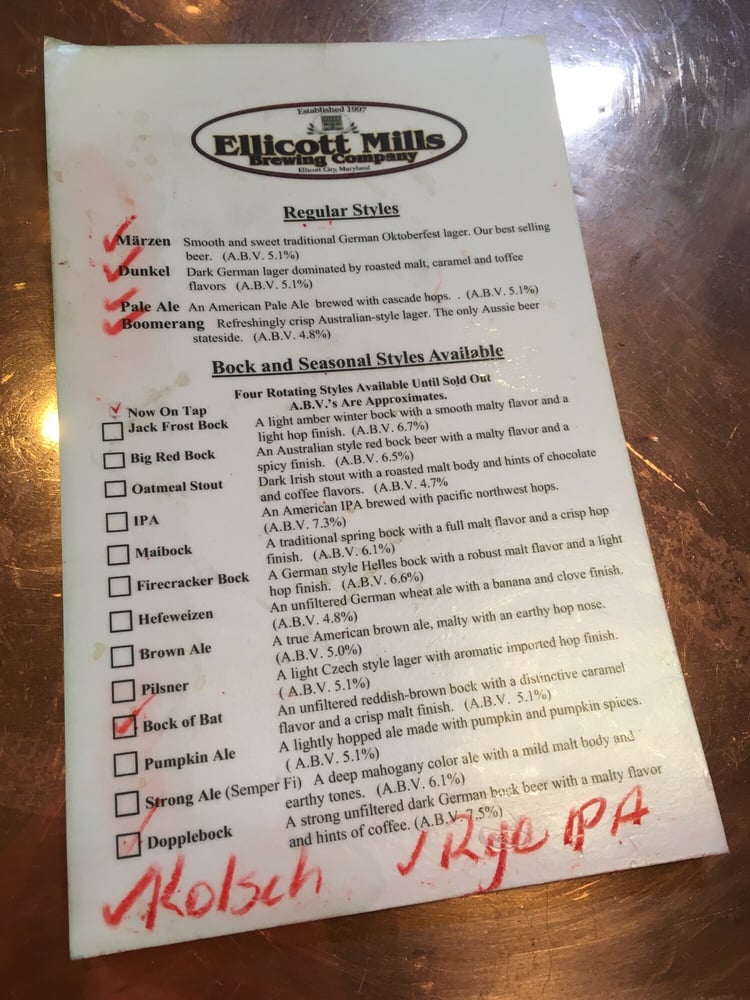 Established 1997
Ellicott Mills
Brewing Company
Ellicott City, Maryland
Regular Styles
Märzen Smooth and sweet traditional German Oktoberfest lager. Our best selling
beer. (A.B.V. 5.1%)
Dunkel Dark German lager dominated by roasted malt, caramel and toffee
flavors (A.B.V. 5.1%)
Pale Ale An American Pale Ale brewed with cascade hops. . (A.B.V. 5.1%)
Boomerang Refreshingly crisp Australian-style lager. The only Aussie beer
stateside. (A.B.V. 4.8%)
Bock and Seasonal Styles Available
Four Rotating Styles Available Until Sold Out
A.B.V.'s Are Approximates.
Now On Tap
Jack Frost Bock A light amber winter bock with a smooth malty flavor and a
light hop finish. (A.B.V. 6.7%)
Big Red Bock An Australian style red bock beer with a malty flavor and a
spicy finish. (A.B.V. 6.5%)
Oatmeal Stout Dark Irish stout with a roasted malt body and hints of chocolate
and coffee flavors. (A.B.V. 4.7%
IPA An American IPA brewed with pacific northwest hops.
(A.B.V. 7.3%)
Maibock A traditional spring bock with a full malt flavor and a crisp hop
finish. (A.B.V. 6.1%)
Firecracker Bock A German style Helles bock with a robust malt flavor and a light
hop finish. (A.B.V. 6.6%)
Hefeweizen An unfiltered German wheat ale with a banana and clove finish.
(A.B.V. 4.8%)
Brown Ale A true American brown ale, malty with an earthy hop nose.
(A.B.V. 5.0%)
Pilsner A light Czech style lager with aromatic imported hop finish.
( A.B.V. 5.1%)
Bock of Bat An unfiltered reddish-brown bock with a distinctive caramel
flavor and a crisp malt finish. (A.B.V. 5.1%)
Pumpkin Ale A lightly hopped ale made with pumpkin and pumpkin spices.
( A.B.V. 5.1%)
Strong Ale (Semper Fi) A deep mahogany color ale with a mild malt body and
earthy tones. (A.B.V. 6.1%)
Dopplebock A strong unfiltered dark German bock beer with a malty flavor
and hints of coffee. (A.B.V. 7.5%)
Kolsch Rye IPA